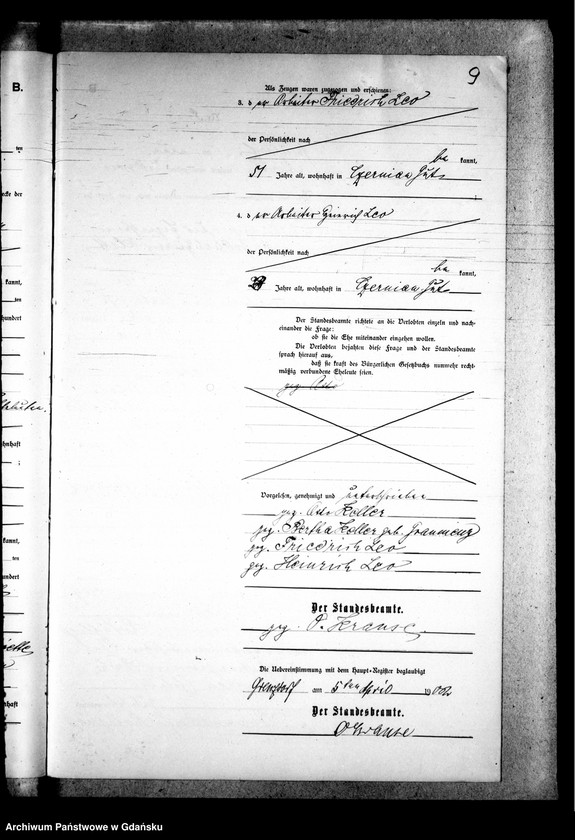 B.
9
Als Zeugen waren zugezogen und erschienen:
3. d er Arbeiter Friedrich Leo
der Persönlichkeit nach
be kannt,
51 Jahre alt, wohnhaft in Czernian Gut
4. d er Arbeiter Heinrich Leo
der Persönlichkeit nach
be kannt,
Jahre alt, wohnhaft in Czernian Gut
Der Standesbeamte richtete an die Verlobten einzeln und nach-
einander die Frage:
ob sie die Ehe miteinander eingehen wollen.
Die Verlobten bejahten diese Frage und der Standesbeamte
sprach hierauf aus,
daß sie kraft des Bürgerlichen Gesetzbuchs nunmehr recht-
mäßig verbundene Eheleute seien.
gez. Otto
Vorgelesen, genehmigt und unterschrieben
gez. Otto Keller
gez. Bertha Keller geb.
gez. Friedrich Leo
gez. Heinrich Leo
Der Standesbeamte.
gez. O. Krause
Die Uebereinstimmung mit dem Haupt-Register beglaubigt
Grenzdorf am 5ten April 1902
Der Standesbeamte.
O Krause
Archiwum Państwowe w Gdańsku